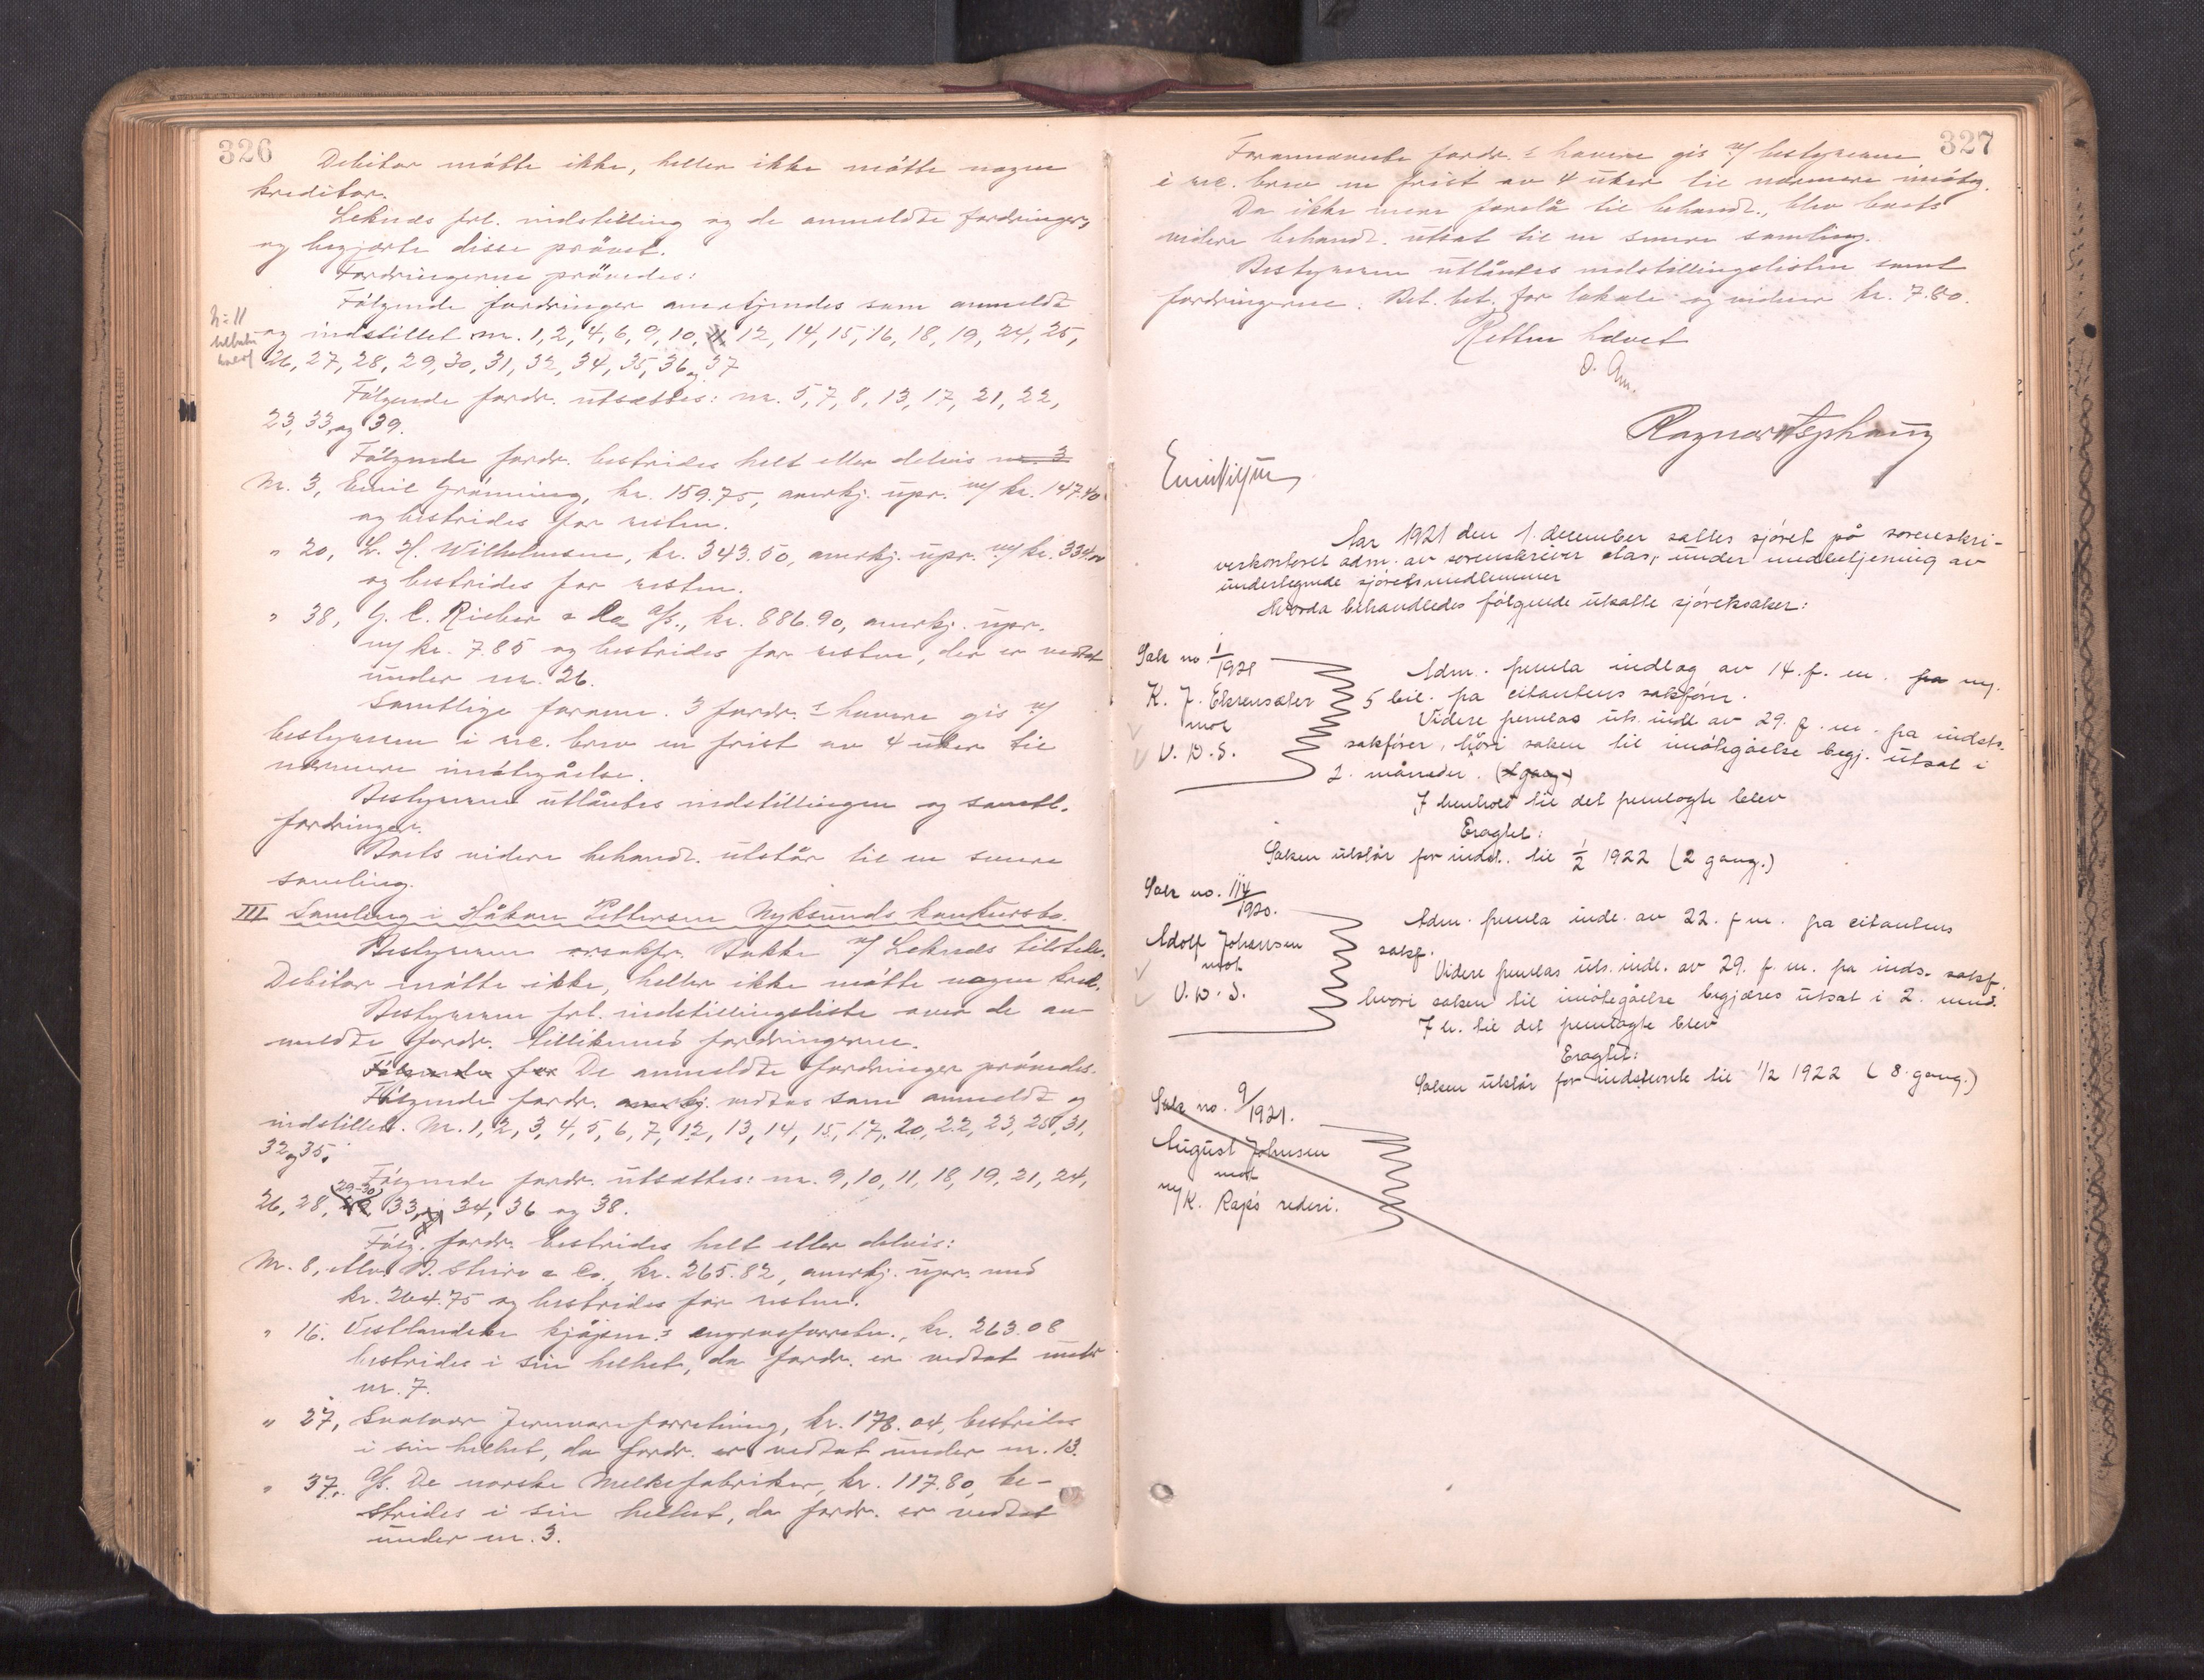 326
Debitor møtte ikke, heller ikke møtte nogen
kreditor.
Leknes frl. indstilling og de anmeldte fordringer,
og begjærte disse prövet.
Fordringerne prövedes:
Følgende fordringer anerkjendes som anmeldt
og indstillet nr. 1, 2, 4, 6, 9, 10, 11, 12, 14, 15, 16, 18, 19, 24, 25,
26, 27, 28, 29, 30, 31, 32, 34, 35, 36 og 37
Følgende fordr. utsættes: nr. 5, 7, 8, 13, 17, 21, 22,
23, 33 og 39.
Følgende fordr. bestrides helt eller delvis nr. 3
Nr. 3, Emil Grønning, kr. 159.75, anerkj. upr. m/ kr. 147.40
og bestrides for resten.
" 20, L. H. Wilhelmsen, kr. 343.50, anerkj. upr. m/ kr.
og bestrides for resten.
" 38, G. C. Rieber & Co A/S., kr. 886.90, anerkj. upr.
m/ kr. 7.85 og bestrides for resten, der er vedtat
under nr. 26.
Samtlige forann. 3 fordr.s havere gis v/
bestyreren i rec. brev en frist av 4 uker til
nærmere imøtegåelse.
Bestyreren utlåntes indstillingen og samtl.
fordringer.
Boets videre behandl. utstår til en senere
samling.
III Samling i Håkon Pettersen Nyksunds konkursbo.
Bestyreren orsakfr. Bakke v/ Leknes tilstede.
Debitor møtte ikke, heller ikke møtte nogen kred.
Bestyreren frl. indstillingsliste over de an-
meldte fordr. tillikemed fordringerne.
Følgende for De anmeldte fordringer prøvedes.
Følgende fordr. anerkj. vedtas som anmeldt og
indstillet. Nr. 1, 2, 3, 4, 5, 6, 7, 12, 13, 14, 15, 17, 20, 22, 23, 25, 31,
32 og 35.
Følgende fordr. utsættes: nr. 9, 10, 11, 18, 19, 21, 24,
29-30
26, 28, 33, og 34, 36 og 38.
Følg. fordr. bestrides helt eller delvis:
Nr. 8, & Co., kr. 265.82, anerkj. upr. med
kr. 264.75 og bestrides for resten.
" 16. Vestlandske kjøpm.s engrosforretn., kr. 263.08
bestrides i sin helhet, da fordr. er vedtat under
nr. 7.
" 27, Svolvær Jernvareforretning, kr. 178.04, bestrides
i sin helhet, da fordr. er vedtat under nr. 13.
" 37, A/S. De norske Melkefabriker, kr. 117.80, be-
strides i sin helhet, da fordr. er vedtat
under nr. 3.
327
Forannævnte fordr.s havere gis v/ bestyreren
i rec. brev en frist av 4 uker til nærmere imøteg.
Da ikke mere forelå til behandl., blev boets
videre behandl. utsat til en senere samling.
Bestyreren utlåntes indstillingslisten samt
fordringerne. Bet. bet. for lokale og vidner kr. 7.80.
Retten hævet
Aar 1921 den 1. december sattes sjøret på sorenskri-
verkontoret adm. av sorenskriver Aas, under medbetjening av
undertegnede sjøretsmedlemmer
Hvorda behandledes følgende utsatte sjøretssaker:
Sak no. 1/1921
K. J. Ekrensæter
mot
V. D. S.
Adm. freml. indlæg av 14. f. m. fra m/
5 bil. fra citantens sakfører.
Videre fremlas uts. indl. av 29. f. m. fra indst.
sakfører, hvori saken til imøtegåelse begj. utsat i
2 måneder. (2 gang)
I henhold til det fremlagte blev
Eragtet:
Saken utstår for indst. til 1/2 1922 (2 gang.)
Sak no. 114/1920.
Adolf Johansen
mot
V. D. S.
Adm. freml. indl. av 22. f. m. fra citantens
sakf.
Videre fremlas uts. indl. av 29. f. m. fra inds. sakf.
hvori saken til imøtegåelse begjæres utsat i 2. mnd.
I h. til det fremlagte blev
Eragtet:
Saken utstår for indstevnte til 1/2 1922 (8. gang.)
Sak no. 9/1921.
August Johnsen
mot
m/K. Rap's rederi.